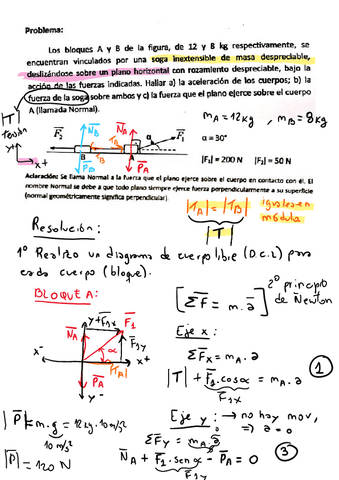 Problema:
Los bloques A y B de la figura, de 12 y 8 kg respectivamente, se
encuentran vinculados por una soga inextensible de masa despreciable,
deslizándose sobre un plano horizontal con rozamiento despreciable, bajo la
acción de las fuerzas indicadas. Hallar a) la aceleración de los cuerpos; b) la
fuerza de la soga sobre ambos y c) la fuerza que el plano ejerce sobre el cuerpo
A (llamada Normal).
|T|
tensión
m_A = 12 kg , m_B = 8 kg
y+
x+
F₂ N_B N_A F₁
T_B T_A α
B A
P_B P_A
α = 30°
|F₁| = 200 N |F₂| = 50 N
Aclaración: Se llama Normal a la fuerza que el plano ejerce sobre el cuerpo en contacto con él. El
nombre Normal se debe a que todo plano siempre ejerce fuerza perpendicularmente a su superficie
(normal geométricamente significa perpendicular).
|T_A| = |T_B| iguales en módulo
|T|
Resolución:
1º Realizo un diagrama de cuerpo libre (D.C.L) para
cada cuerpo (bloque).
BLOQUE A:
[ΣF = m.a] 2º principio de Newton
y+ F₁x
N_A F₁
F₁y
α
x- x+
|T_A|
P_A
y-
Eje x:
ΣFx = m_A . a
|T| + F₁.cosα = m_A . a
F₁x
1
|P| = m.g = 12 kg . 10 m/s²
10 m/s²
|P| = 120 N
Eje y: → no hay mov,
⇒ a = 0
ΣFy = m_A.a
N_A + F₁.senα - P_A = 0
F₁y
3